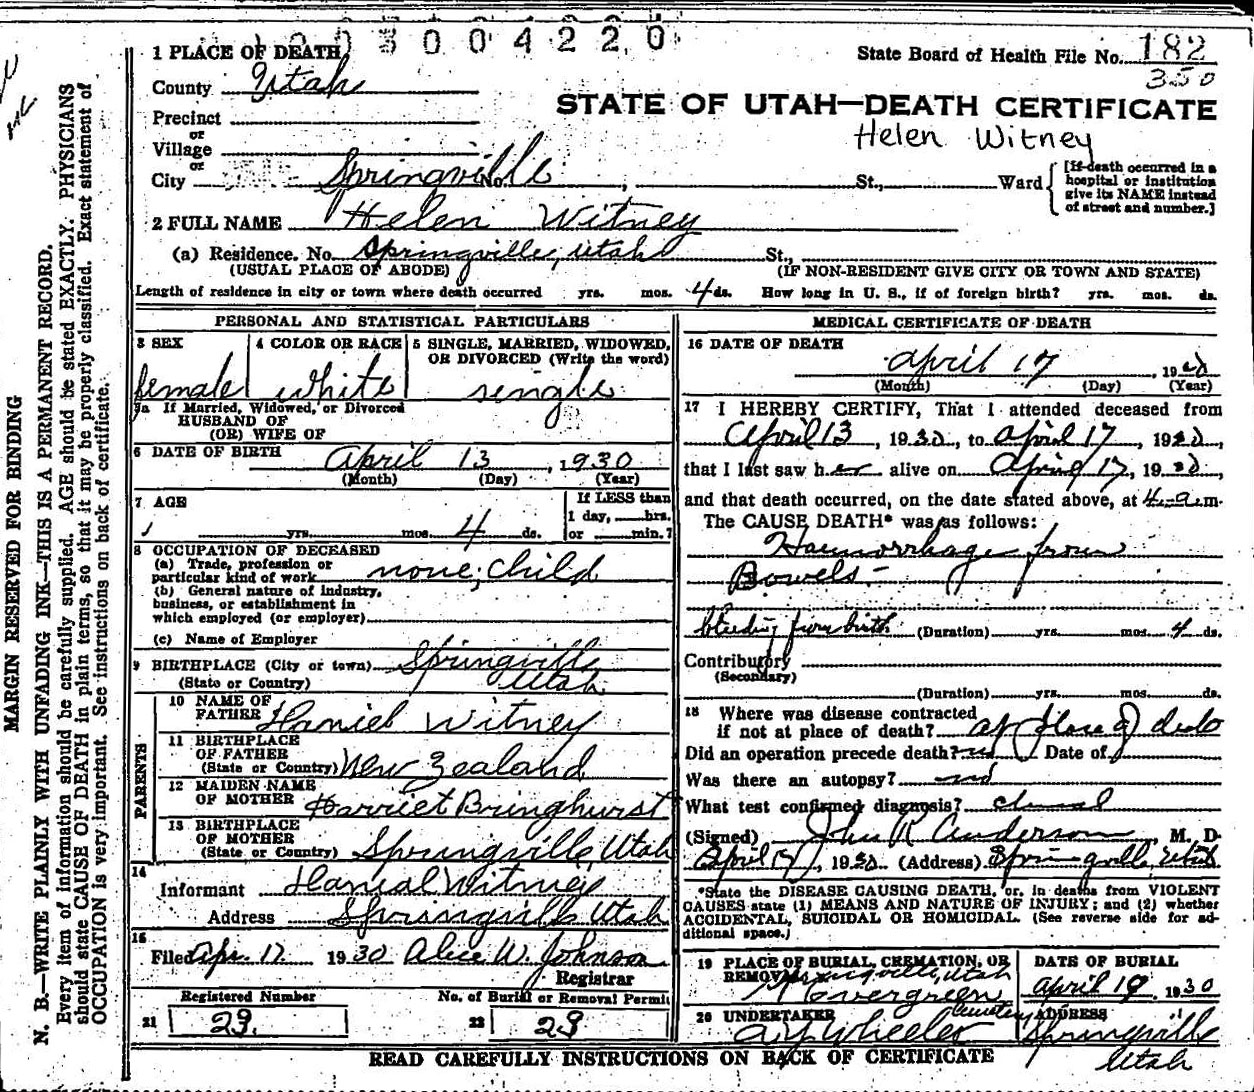 1 9 3 0 0 4 2 2 0
1 PLACE OF DEATH
State Board of Health File No. 182
350
County Utah
STATE OF UTAH—DEATH CERTIFICATE
Precinct
or
Helen Witney
Village
or
City Springville No. , St., Ward
[If death occurred in a
hospital or institution
give its NAME instead
of street and number.]
2 FULL NAME Helen Witney
(a) Residence. No. Springville, Utah St.,
(USUAL PLACE OF ABODE) (IF NON-RESIDENT GIVE CITY OR TOWN AND STATE)
Length of residence in city or town where death occurred yrs. mos. 4 ds. How long in U. S., if of foreign birth? yrs. mos. ds.
PERSONAL AND STATISTICAL PARTICULARS
3 SEX female
4 COLOR OR RACE white
5 SINGLE, MARRIED, WIDOWED,
OR DIVORCED (Write the word)
single
3a If Married, Widowed, or Divorced
HUSBAND OF
(OR) WIFE OF
6 DATE OF BIRTH April 13, 1930
(Month) (Day) (Year)
7 AGE
yrs. mos. 4 ds.
If LESS than
1 day, hrs.
or min.?
8 OCCUPATION OF DECEASED
(a) Trade, profession or
particular kind of work none; child
(b) General nature of industry,
business, or establishment in
which employed (or employer)
(c) Name of Employer
9 BIRTHPLACE (City or town) Springville
(State or Country) Utah
PARENTS
10 NAME OF
FATHER Haniel Witney
11 BIRTHPLACE
OF FATHER
(State or Country) New Zealand
12 MAIDEN NAME
OF MOTHER Harriet Bringhurst
13 BIRTHPLACE
OF MOTHER
(State or Country) Springville, Utah
14
Informant Hanial Witney
Address Springville Utah
15
Filed Apr. 17 1930 Alice W. Johnson
Registrar
Registered Number
21 29.
No. of Burial or Removal Permit
22 29
MEDICAL CERTIFICATE OF DEATH
16 DATE OF DEATH
April 17 1930
(Month) (Day) (Year)
17 I HEREBY CERTIFY, That I attended deceased from
April 13, 1930, to April 17, 1930,
that I last saw her alive on 17, 1930,
and that death occurred, on the date stated above, at 4 a.m.
The CAUSE DEATH* was as follows:
Haemorrhage from
Bowels-
bleeding from birth (Duration) yrs. mos. 4 ds.
Contributory
(Secondary)
(Duration) yrs. mos. ds.
18 Where was disease contracted
if not at place of death? at place of
Did an operation precede death? no Date of
Was there an autopsy? no
What test confirmed diagnosis?
(Signed) John R Anderson, M. D.
April 17, 1930 (Address) Springville, Utah
*State the DISEASE CAUSING DEATH, or, in deaths from VIOLENT
CAUSES state (1) MEANS AND NATURE OF INJURY; and (2) whether
ACCIDENTAL, SUICIDAL OR HOMICIDAL. (See reverse side for ad-
ditional space.)
19 PLACE OF BURIAL, CREMATION, OR
REMOVAL Springville, Utah
Evergreen
Cemetery
DATE OF BURIAL
April 19 1930
20 UNDERTAKER
A. Y. Wheeler
ADDRESS
Springville
Utah
READ CAREFULLY INSTRUCTIONS ON BACK OF CERTIFICATE
MARGIN RESERVED FOR BINDING
N. B.—WRITE PLAINLY WITH UNFADING INK—THIS IS A PERMANENT RECORD.
Every item of information should be carefully supplied. AGE should be stated EXACTLY. PHYSICIANS
should state CAUSE OF DEATH in plain terms, so that it may be properly classified. Exact statement of
OCCUPATION is very important. See instructions on back of certificate.